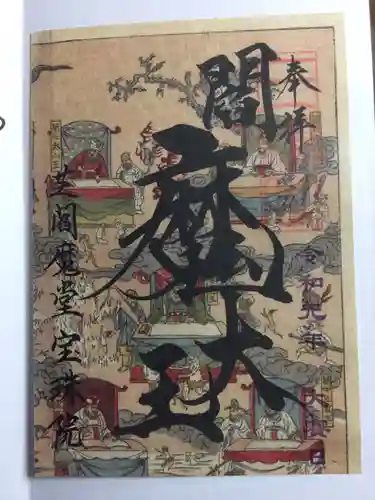 奉拝
閻魔大王
令和元年
芝閻魔堂宝珠院